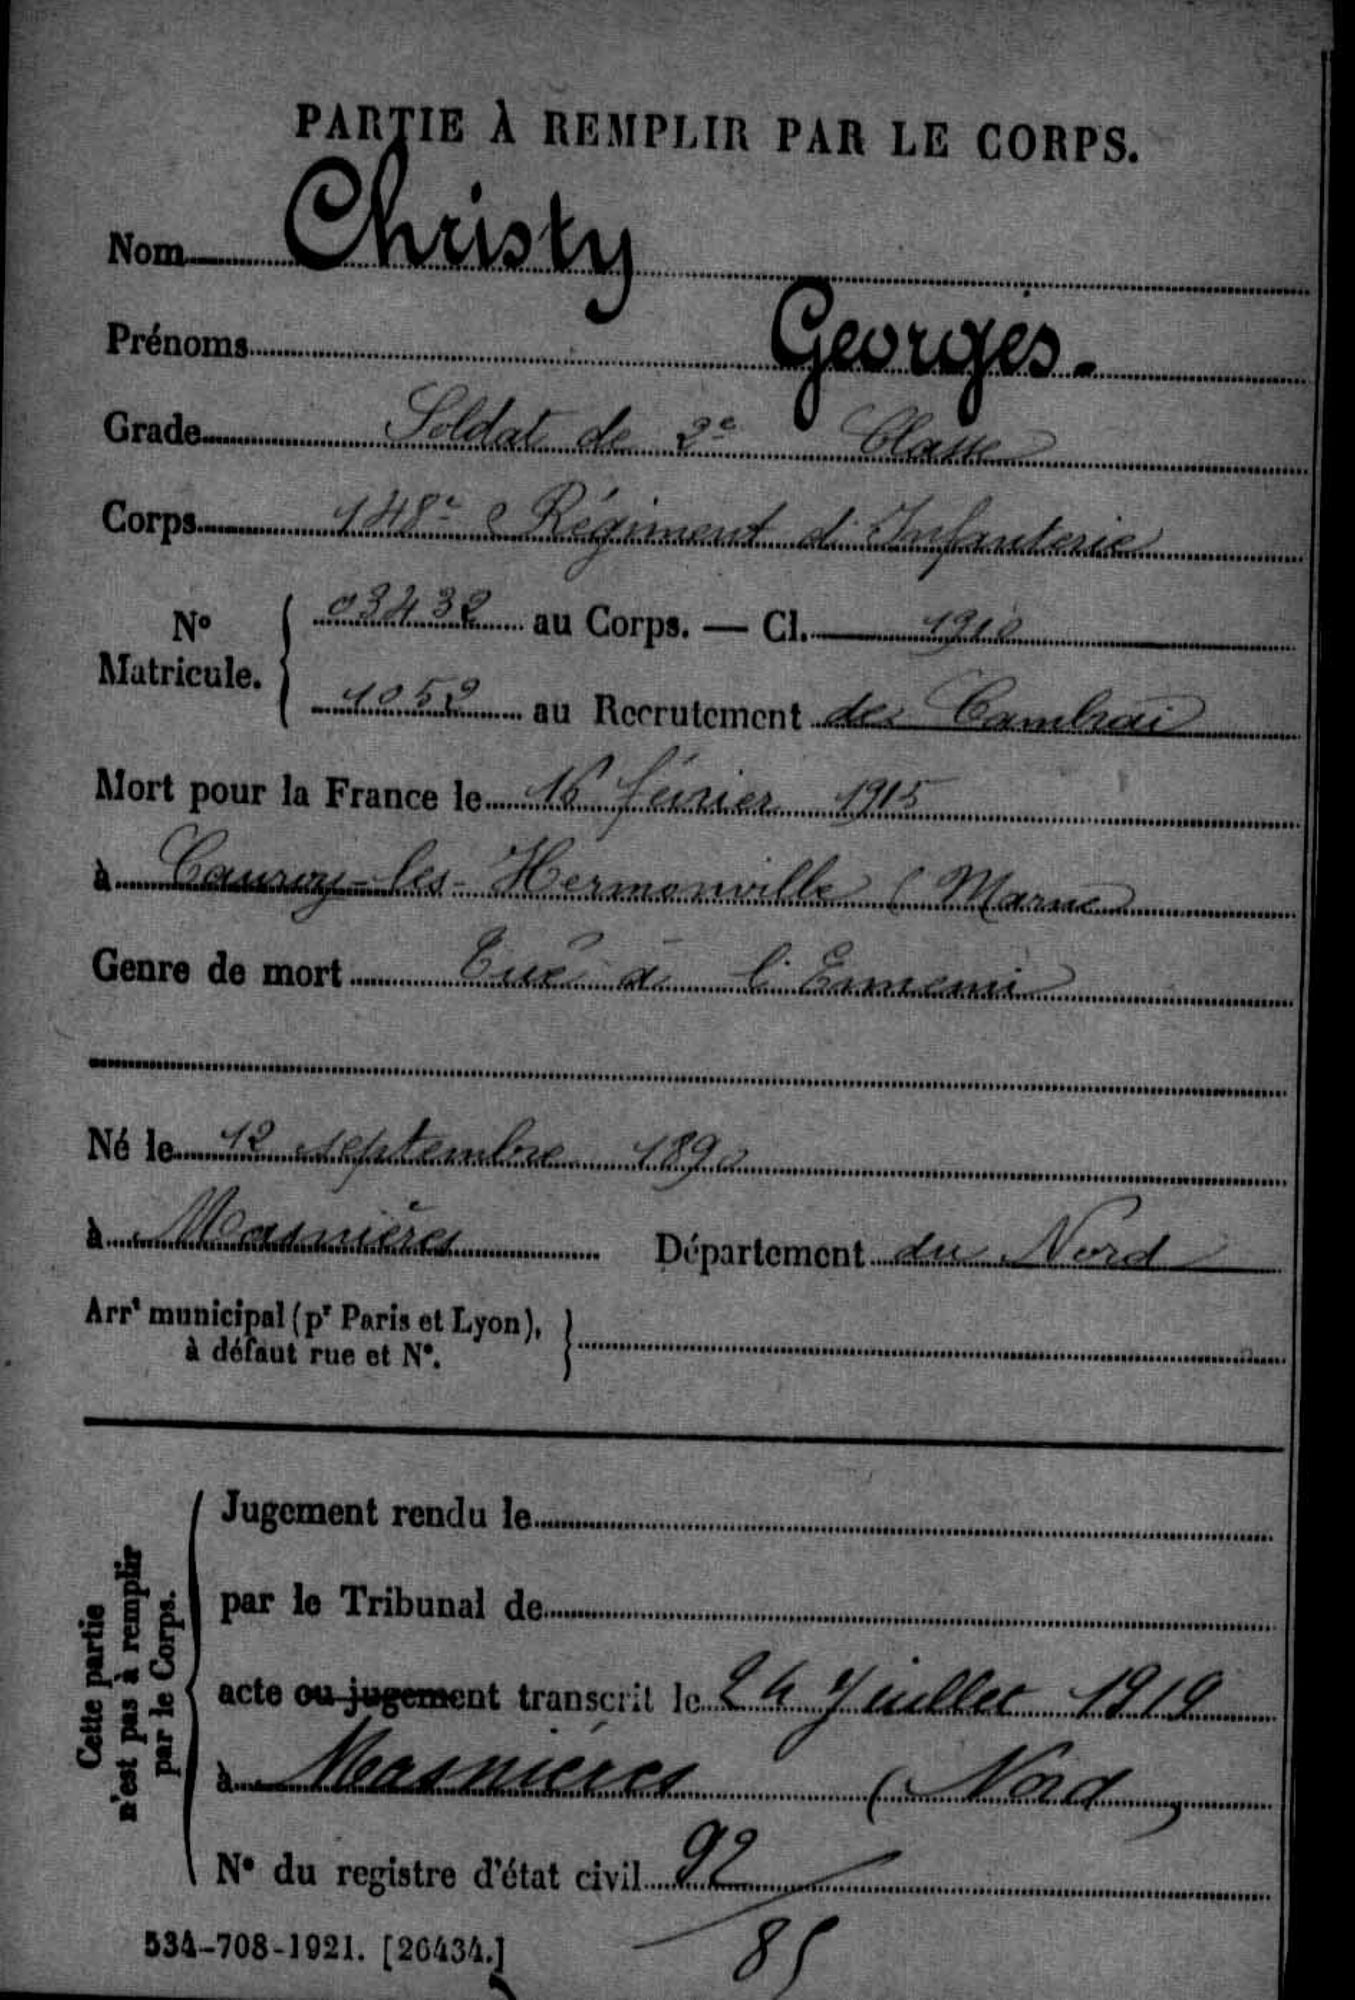 PARTIE À REMPLIR PAR LE CORPS.
Nom Christy
Prénoms Georges.
Grade Soldat de 2e Classe
Corps 148e Régiment d'Infanterie
No Matricule. 03432 au Corps. — Cl. 1910
1052 au Recrutement de Cambrai
Mort pour la France le 16 février 1915
à Cauroy-les-Hermonville (Marne
Genre de mort Tué à l'Ennemi
Né le 12 septembre 1890
à Masnières Département du Nord
Arrt municipal (pr Paris et Lyon), à défaut rue et N°.
Cette partie n'est pas à remplir par le Corps.
Jugement rendu le
par le Tribunal de
acte ou jugement transcrit le 24 Juillet 1919
à Masnières (Nord)
N° du registre d'état civil 92/85
534-708-1921. [26434.]